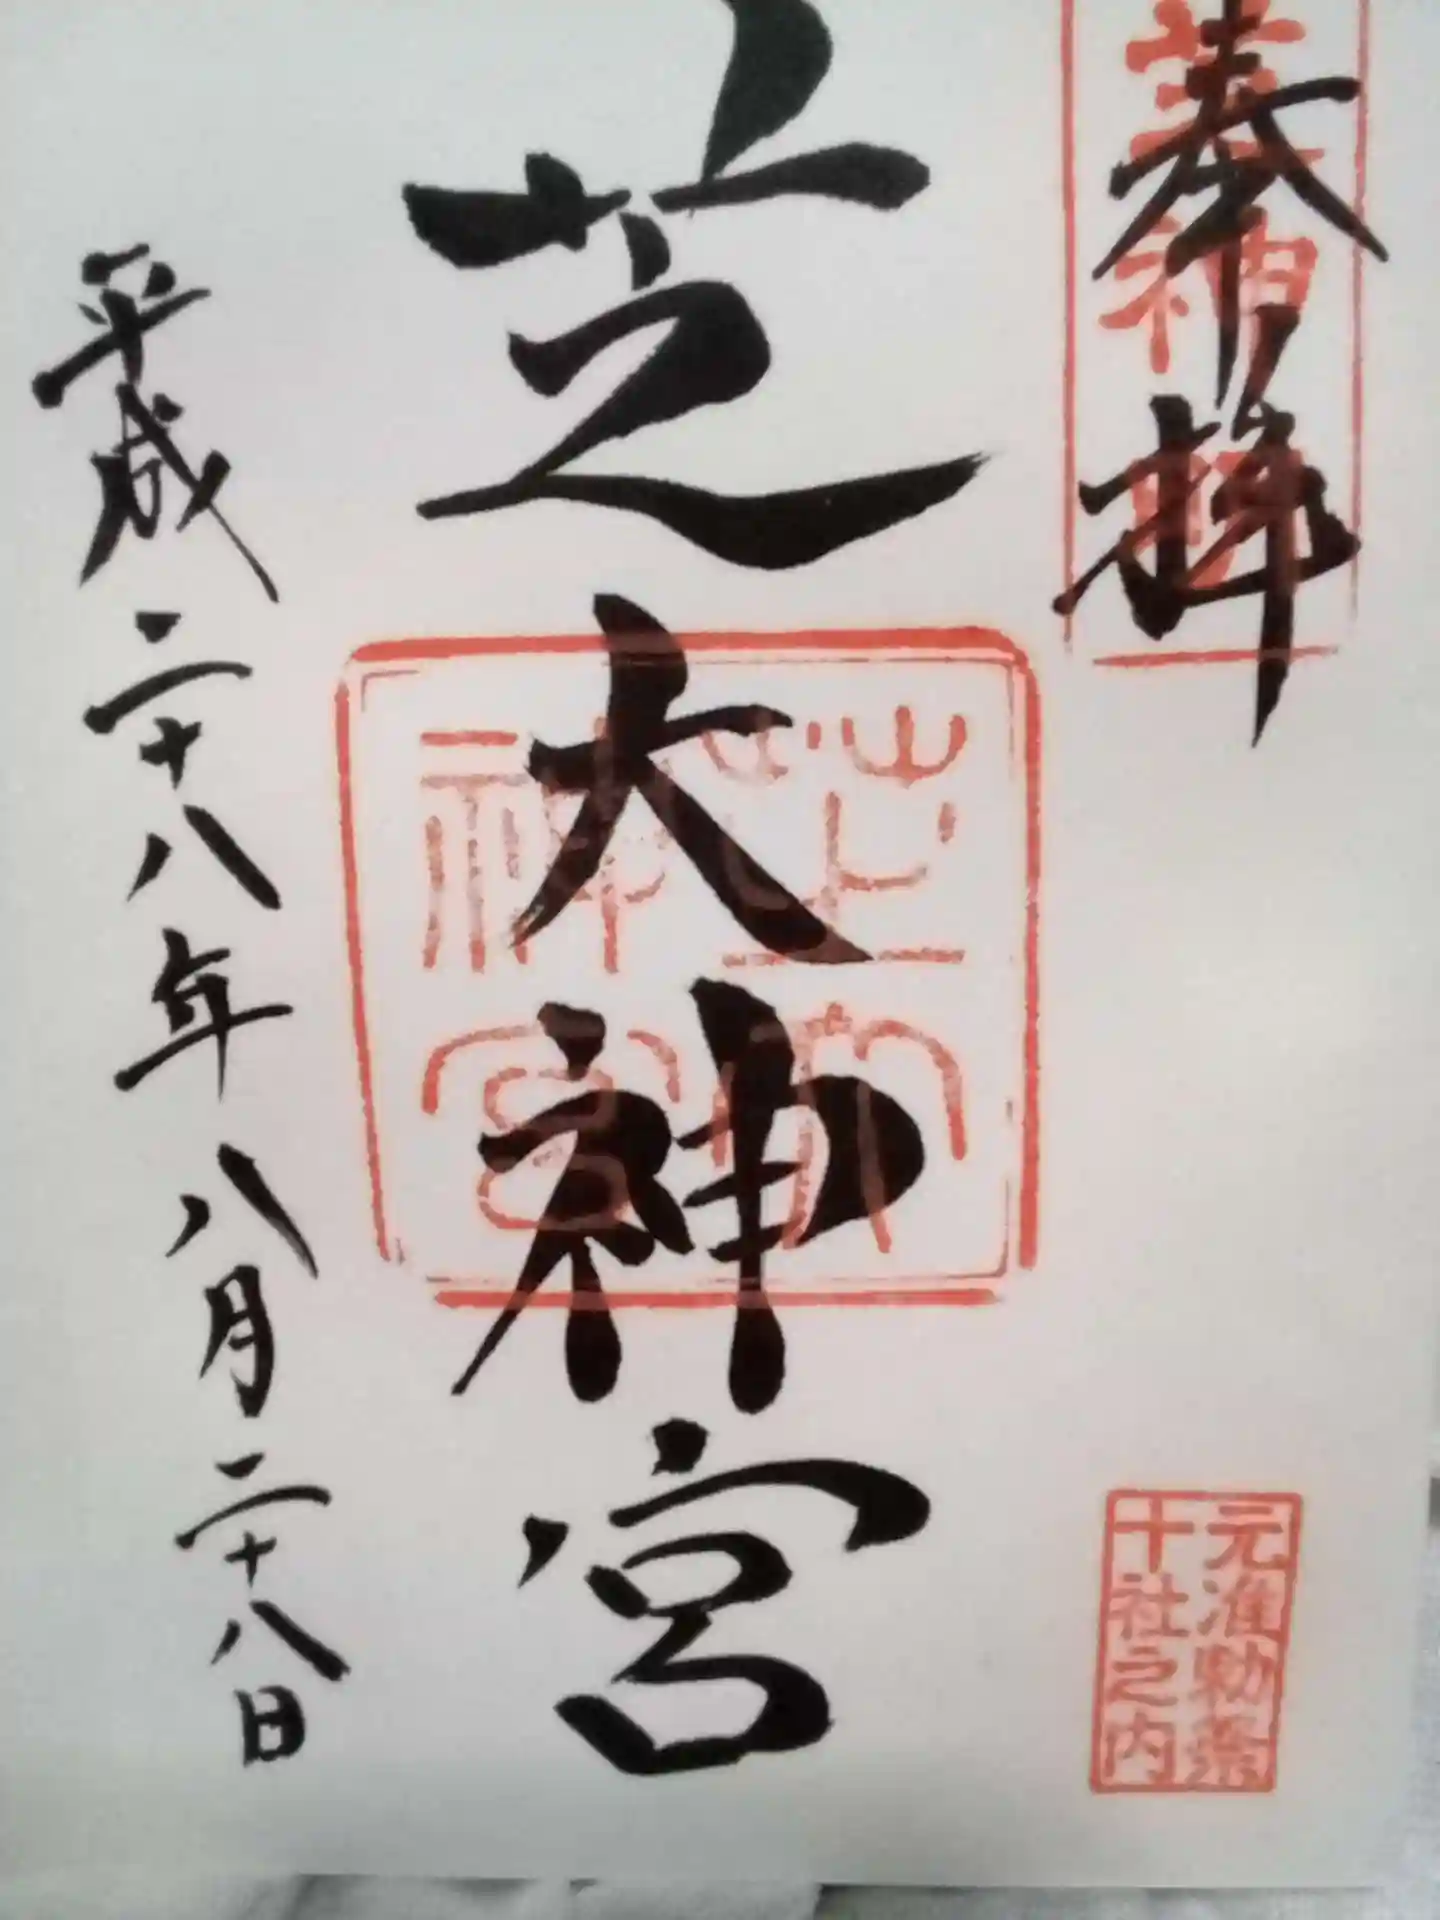 奉拝
芝大神宮
平成二十八年八月二十八日
芝大
神宮
元准勅祭
十社之内